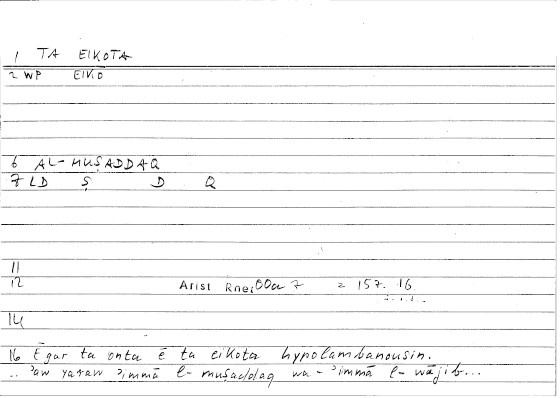 1 TA EIKOTA
2 WP EIKO
6 AL-MUṢADDAQ
7 LD Ṣ D Q
11
12 Arist Rhet 1400a 7 = 157.16
14
16 Ē gar ta onta ē ta eikota hypolambanousin.
.. ʾaw yaraw ʾimmā l-muṣaddaq wa-ʾimmā l-wājib...